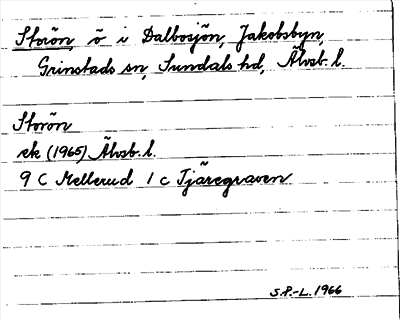 Storön, ö i Dalbosjön, Jakobsbyn,
Grinstads sn, Sundals hd, Älvsb. l.
Storön
ek (1965) Älvsb. l.
9 C Mellerud 1 c Tjäregraven
S.P.-L. 1966